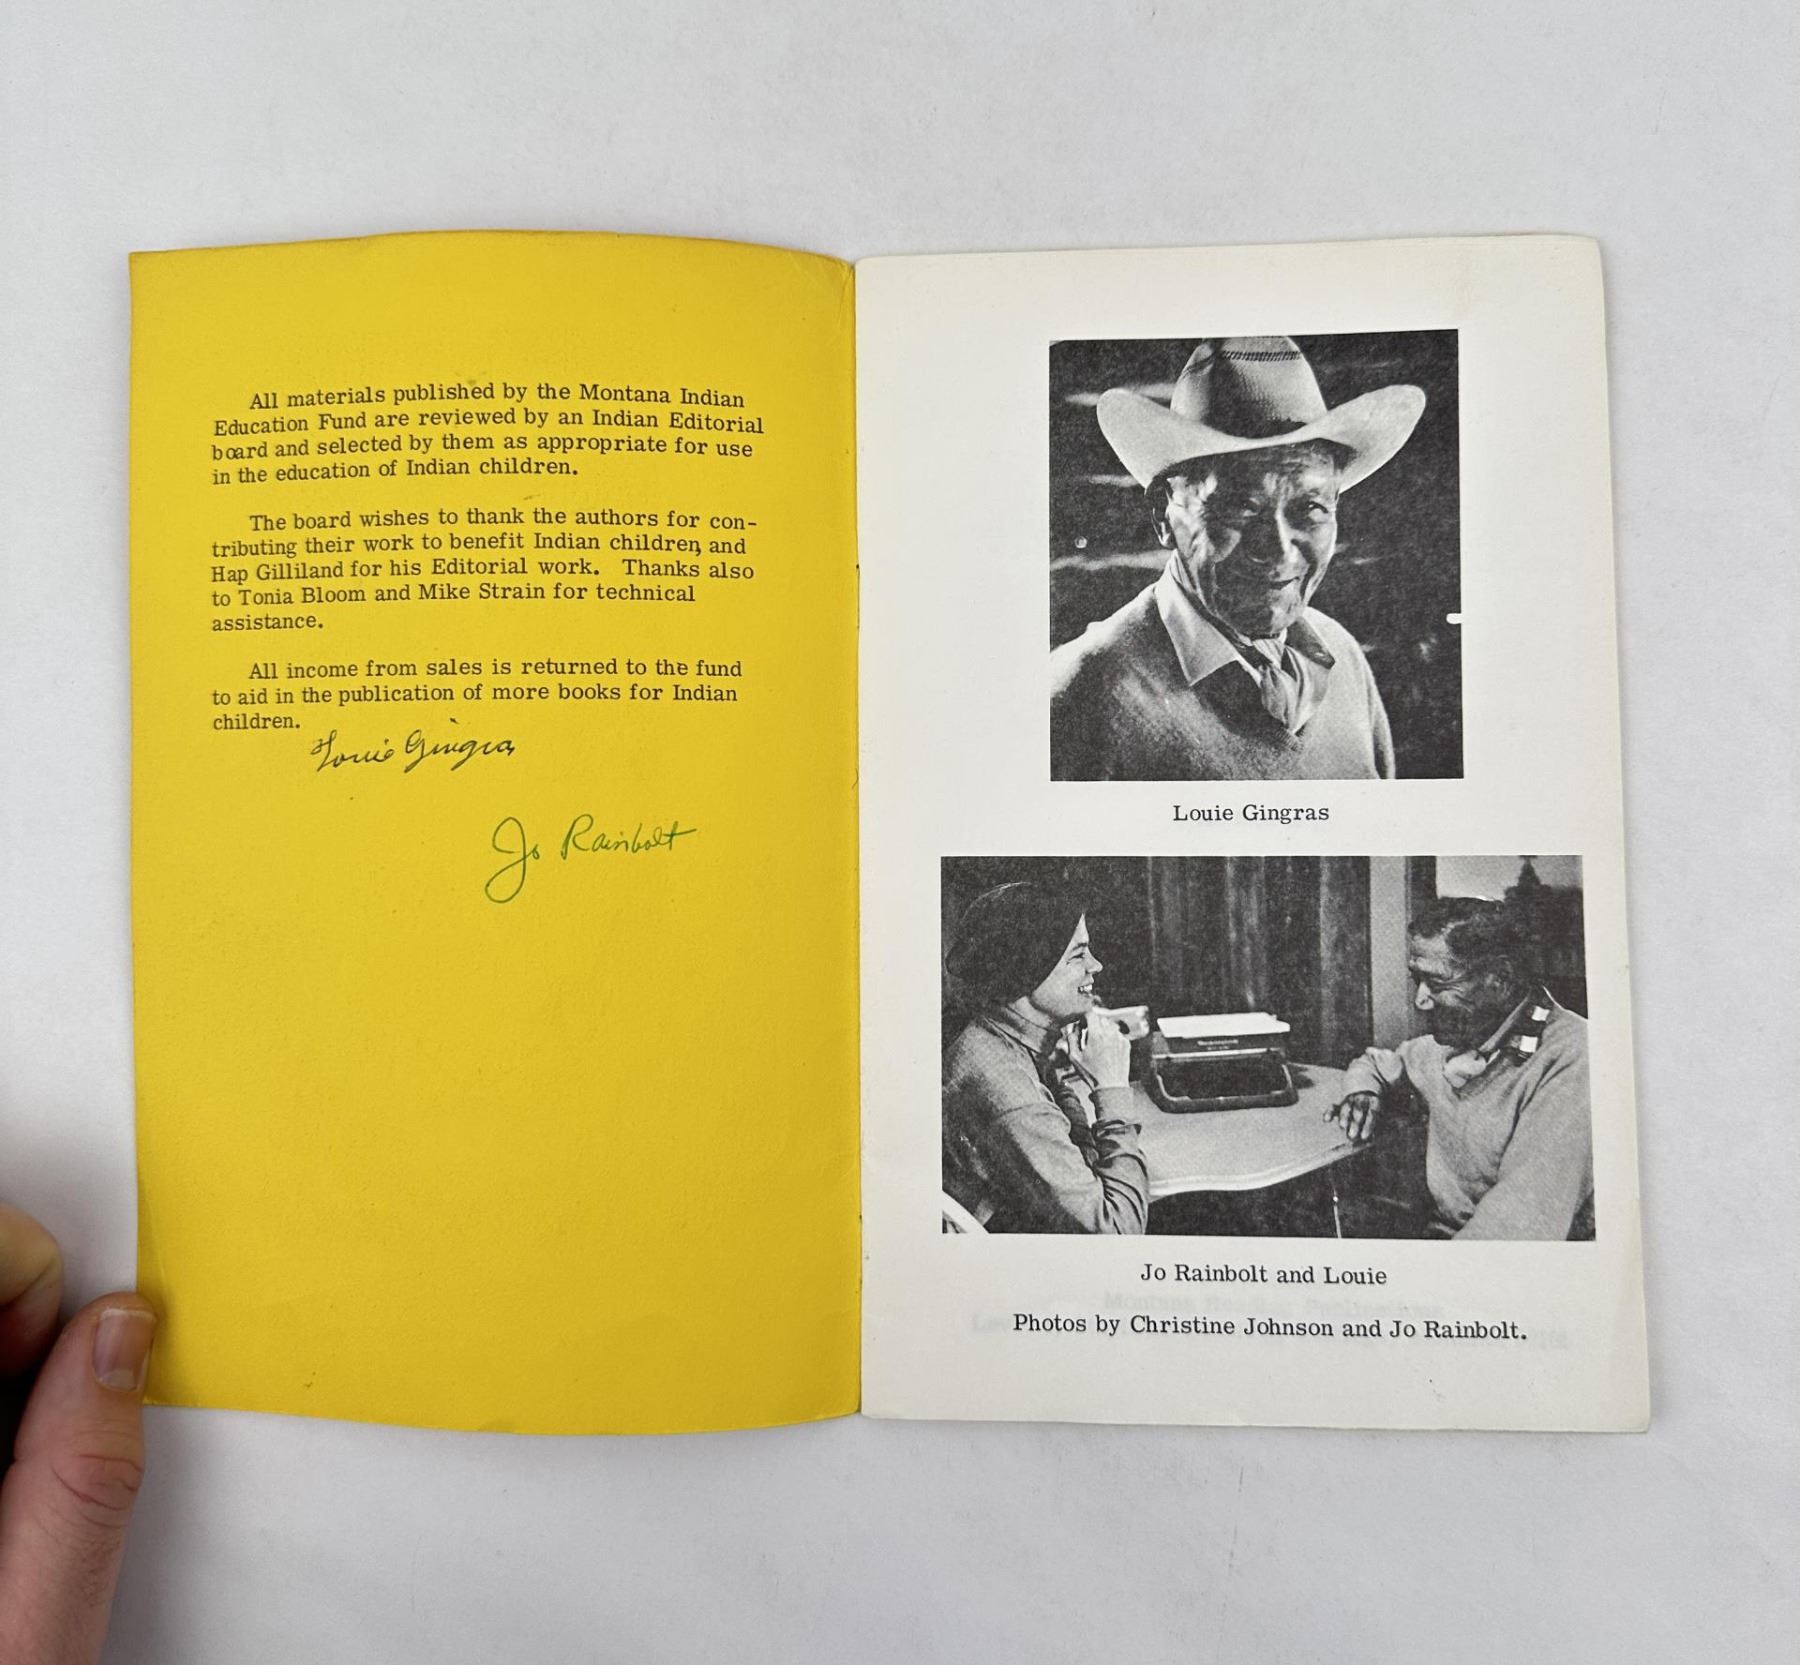 All materials published by the Montana Indian
Education Fund are reviewed by an Indian Editorial
board and selected by them as appropriate for use
in the education of Indian children.
The board wishes to thank the authors for con-
tributing their work to benefit Indian children, and
Hap Gilliland for his Editorial work. Thanks also
to Tonia Bloom and Mike Strain for technical
assistance.
All income from sales is returned to the fund
to aid in the publication of more books for Indian
children.
Louie Gingras
Jo Rainbolt
Louie Gingras
Jo Rainbolt and Louie
Photos by Christine Johnson and Jo Rainbolt.